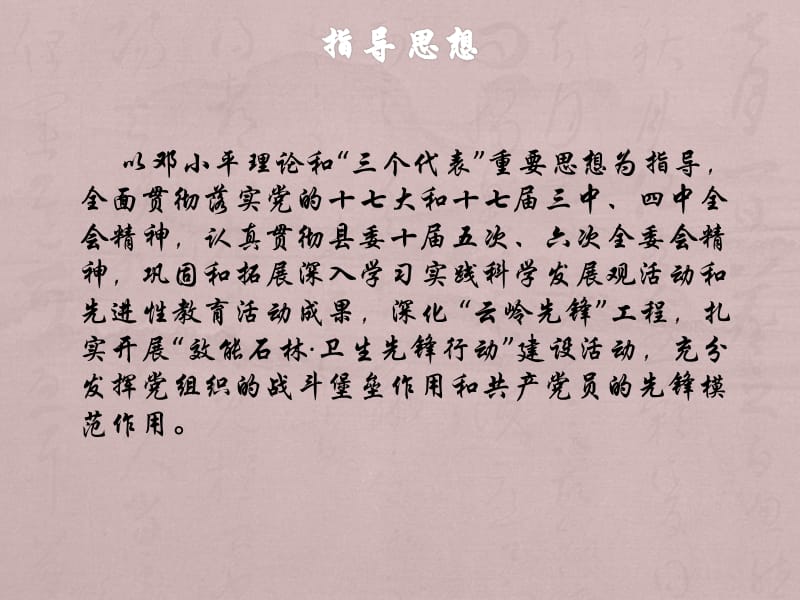 指导思想
以邓小平理论和“三个代表”重要思想为指导，
全面贯彻落实党的十七大和十七届三中、四中全
会精神，认真贯彻县委十届五次、六次全委会精
神，巩固和拓展深入学习实践科学发展观活动和
先进性教育活动成果，深化“云岭先锋”工程，扎
实开展“效能石林·卫生先锋行动”建设活动，充分
发挥党组织的战斗堡垒作用和共产党员的先锋模
范作用。